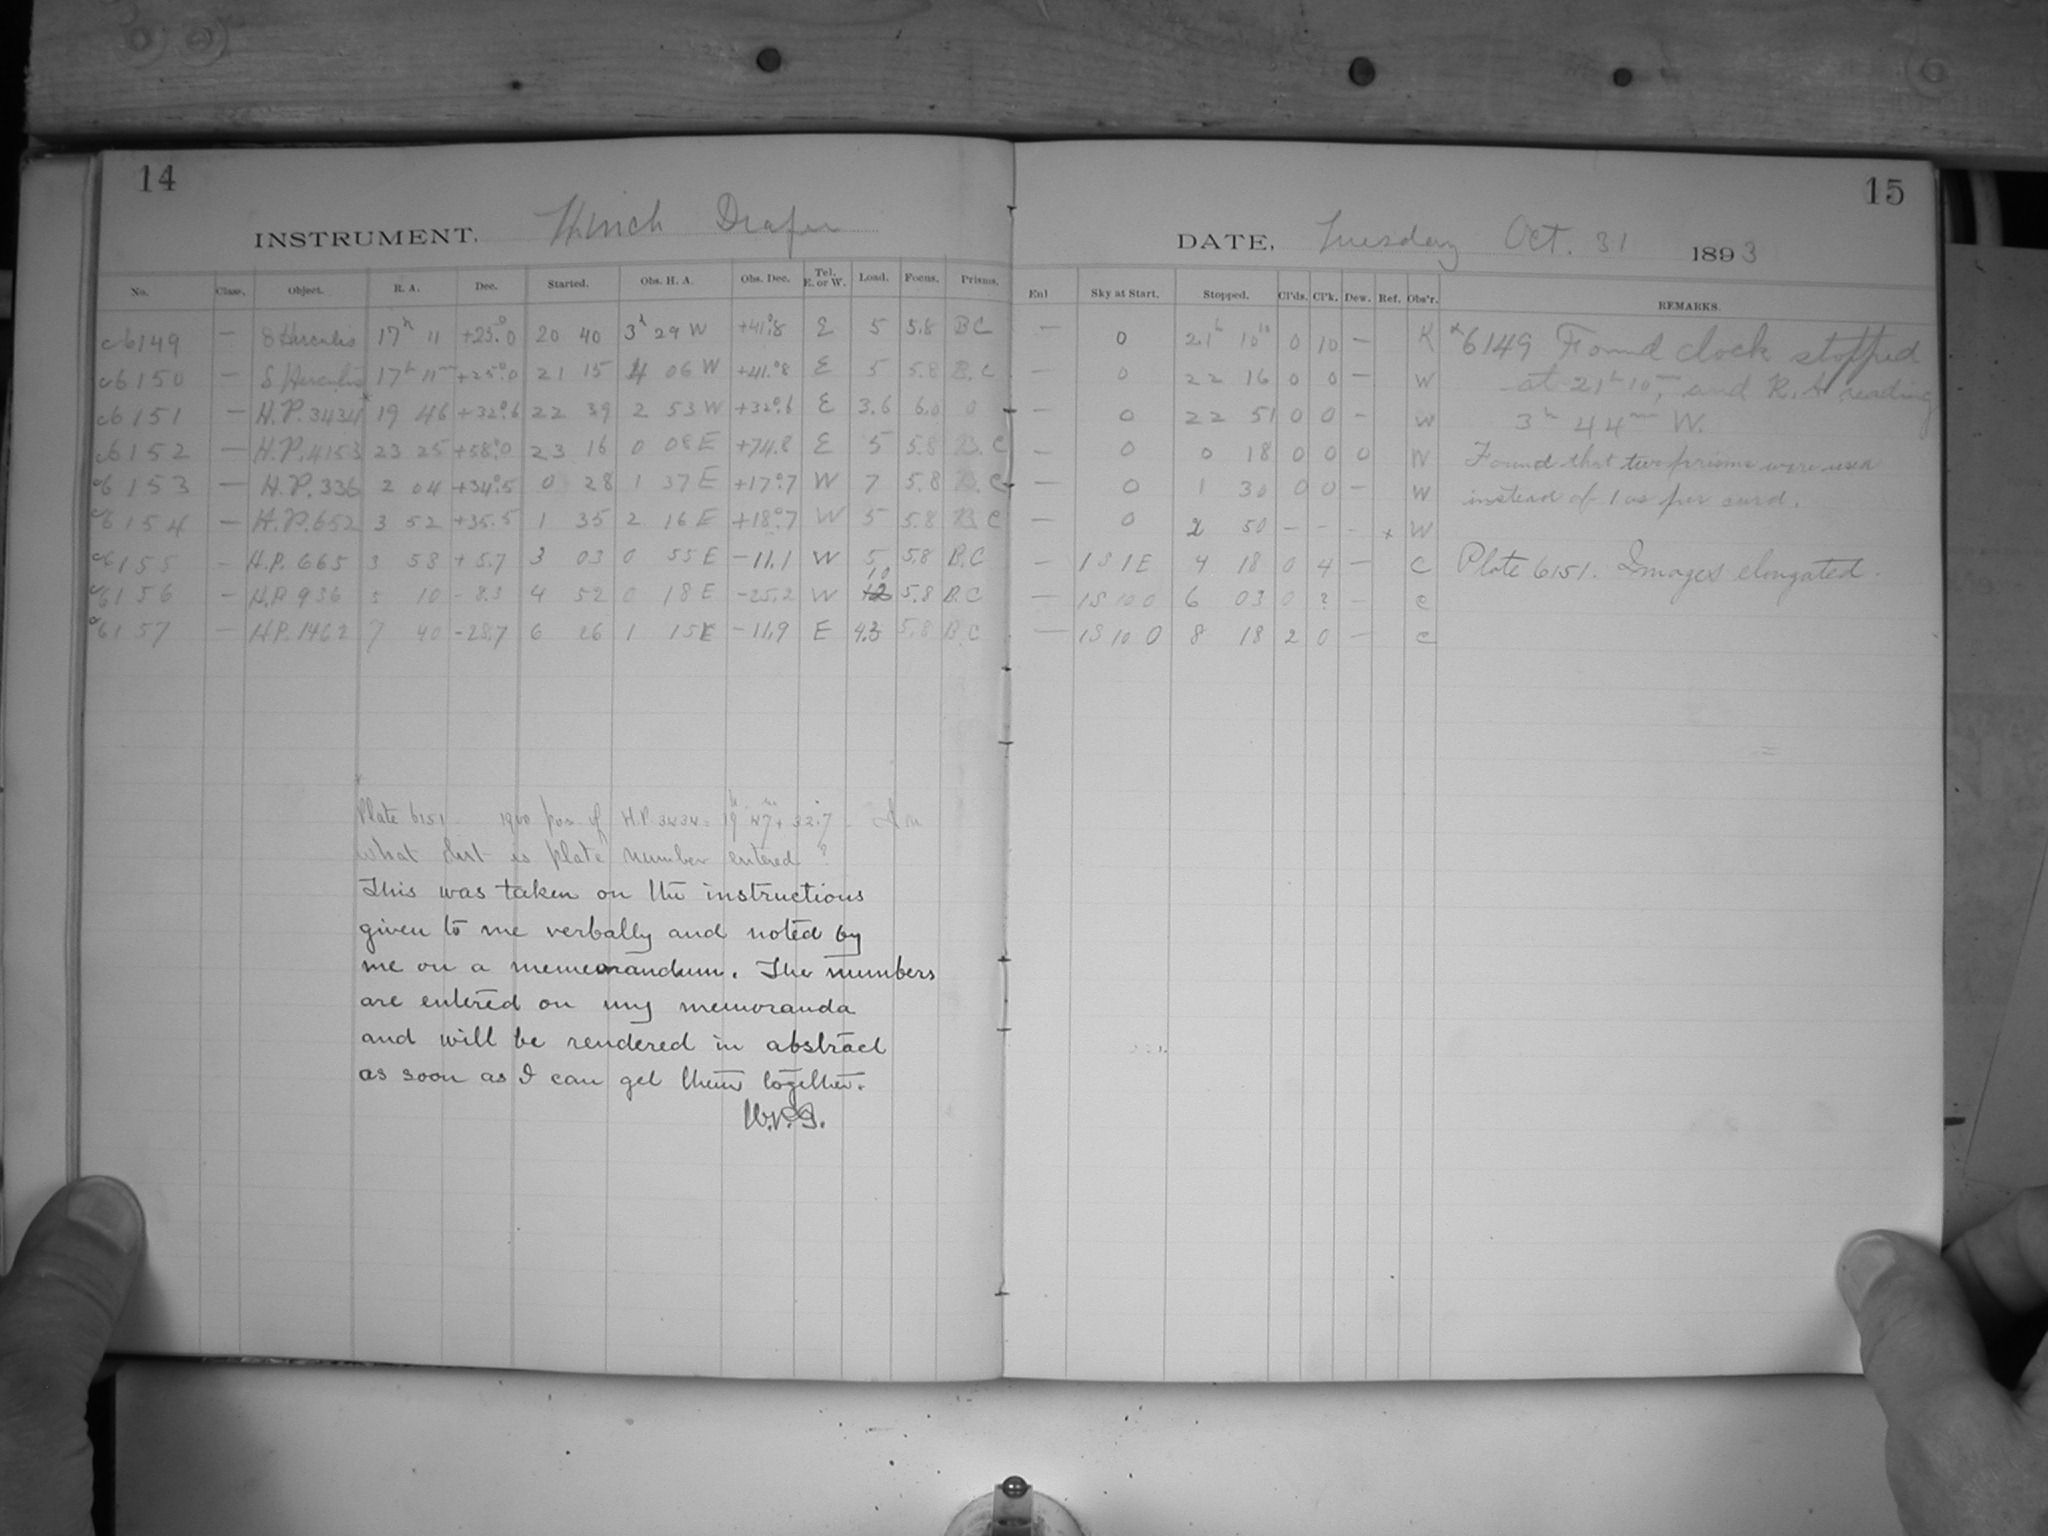 14
INSTRUMENT. 11 inch Draper
No. Class. Object. R. A. Dec. Started. Obs. H. A. Obs. Dec. Tel. E. or W. Load. Focus. Prisms.
c6149 — δ Herculis 17h 11 +25.0 20 40 3h 29 W +41.8 E 5 5.8 BC
c6150 — δ Herculis 17h 11m +25.0 21 15 4 06 W +41.8 E 5 5.8 B.C
c6151 — H.P. 3434x 19 46 +32.6 22 39 2 53 W +32.6 E 3.6 6.0 0
c6152 — H.P. 4153 23 25 +58.0 23 16 0 08 E +74.8 E 5 5.8 B.C
c6153 — H.P. 336 2 04 +34.5 0 28 1 37 E +17.7 W 7 5.8 B.C
c6154 — H.P. 652 3 52 +35.5 1 35 2 16 E +18.7 W 5 5.8 B C
c6155 — H.P. 665 3 58 +5.7 3 03 0 55 E -11.1 W 5 5.8 B.C
c6156 — H.P. 936 5 10 -8.3 4 52 0 18 E -25.2 W 10 5.8 B.C
c6157 — H.P. 1462 7 40 -28.7 6 26 1 15 E -11.9 E 4.3 5.8 B.C
x
Plate 6151 1900 pos. of H.P. 3434 = 19h 47m + 32.°7
What list is plate number entered?
This was taken on the instructions
given to me verbally and noted by
me on a memeorandum. The numbers
are entered on my memoranda
and will be rendered in abstract
as soon as I can get them together.
W.P.G.
15
DATE, Tuesday Oct. 31 1893
Enl Sky at Start. Stopped. Cl'ds. Cl'k. Dew. Ref. Obs'r. REMARKS.
— 0 21h 10m 0 10 — K
— 0 22 16 0 0 — W
— 0 22 51 0 0 — W
— 0 0 18 0 0 0 W
— 0 1 30 0 0 — W
— 0 2 50 — — — x W
— 1S 1E 4 18 0 4 — C
— 1S 10 0 6 03 0 ? — C
— 1S 10 0 8 18 2 0 — C
x6149 Found clock stopped
at 21h 10m, and R.A. reading
3h 44m W.
Found that two prisms were used
instead of 1 as per card.
Plate 6151. Images elongated.